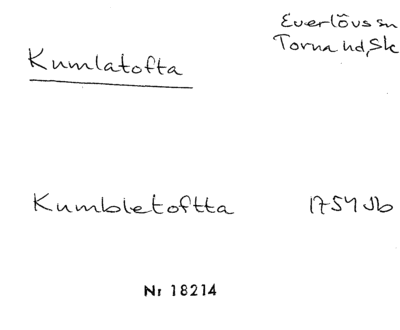 Everlövs sn
Torna hd, Sk
Kumlatofta
Kumbletoftta 1754 Jb
Nr 18214